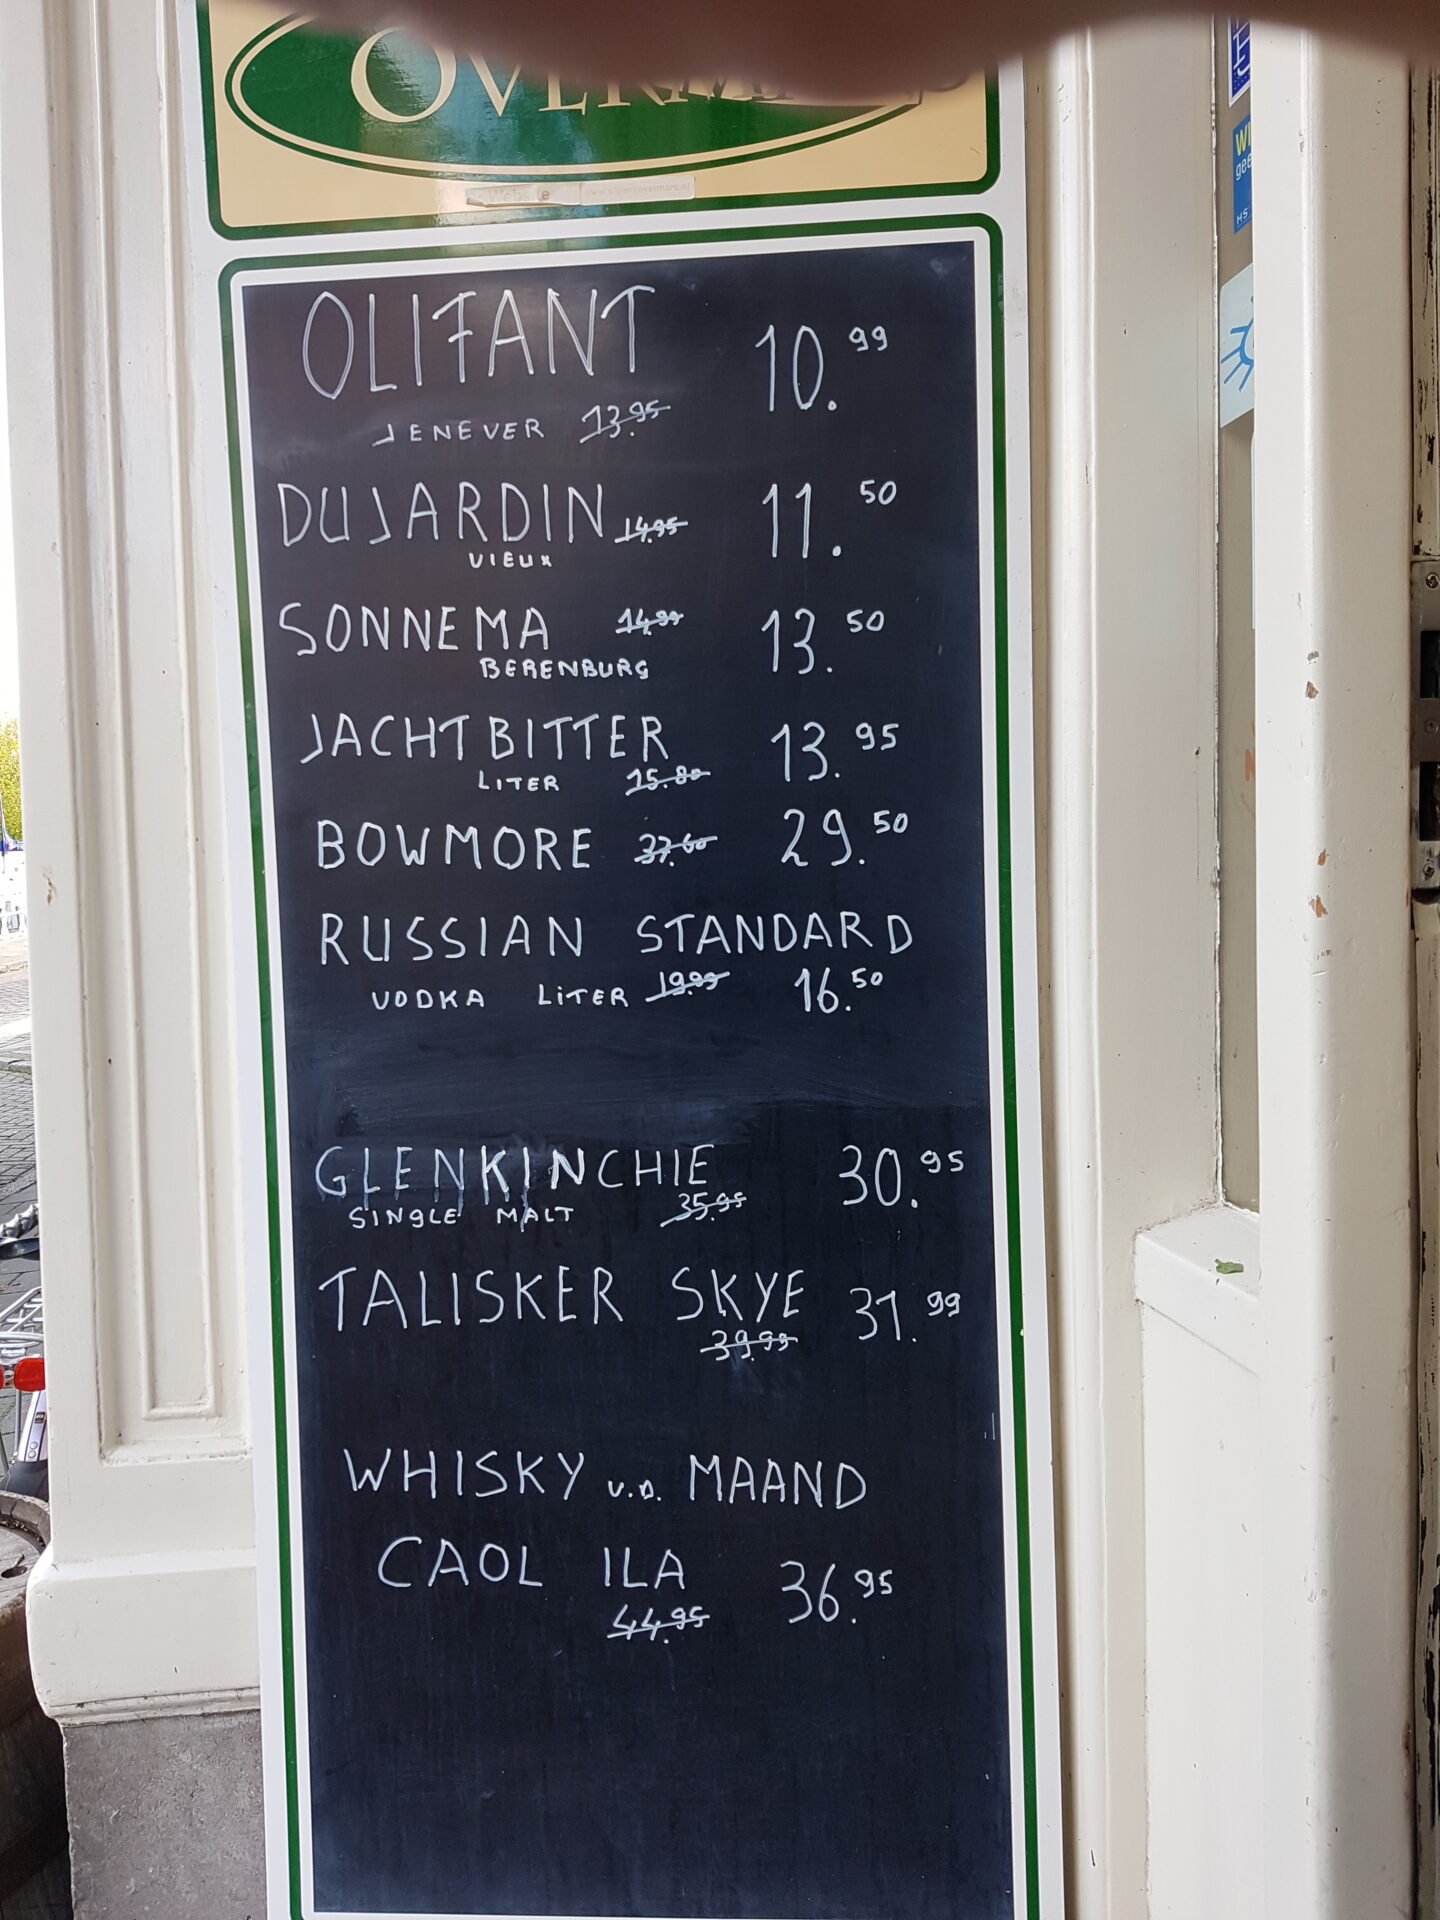 Website www.slijterijovermars.nl
OLIFANT 10.99
JENEVER 13.95
DUJARDIN 14.95 11.50
VIEUX
SONNEMA 14.99 13.50
BERENBURG
JACHTBITTER 13.95
LITER 15.80
BOWMORE 37.60 29.50
RUSSIAN STANDARD
VODKA LITER 19.99 16.50
GLENKINCHIE 30.95
SINGLE MALT 35.95
TALISKER SKYE 31.99
39.99
WHISKY v.d. MAAND
CAOL ILA 36.95
44.95